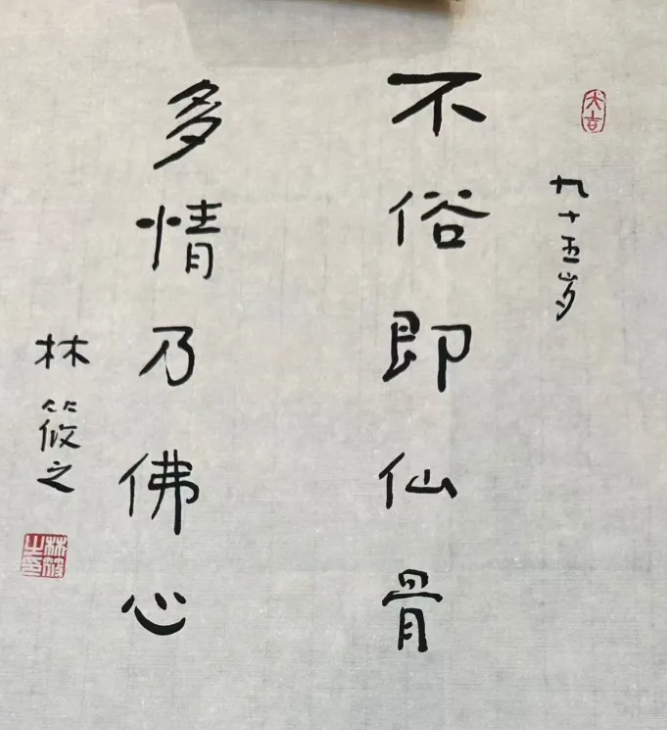 大吉
九十五岁
不俗即仙骨
多情乃佛心
林筱之
林筱之印